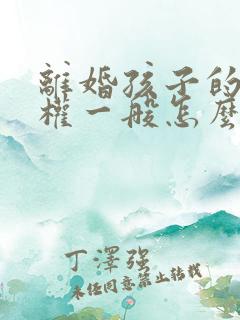 離婚孩子的
權一般怎麼
丁澤強
未經同意禁止轉載